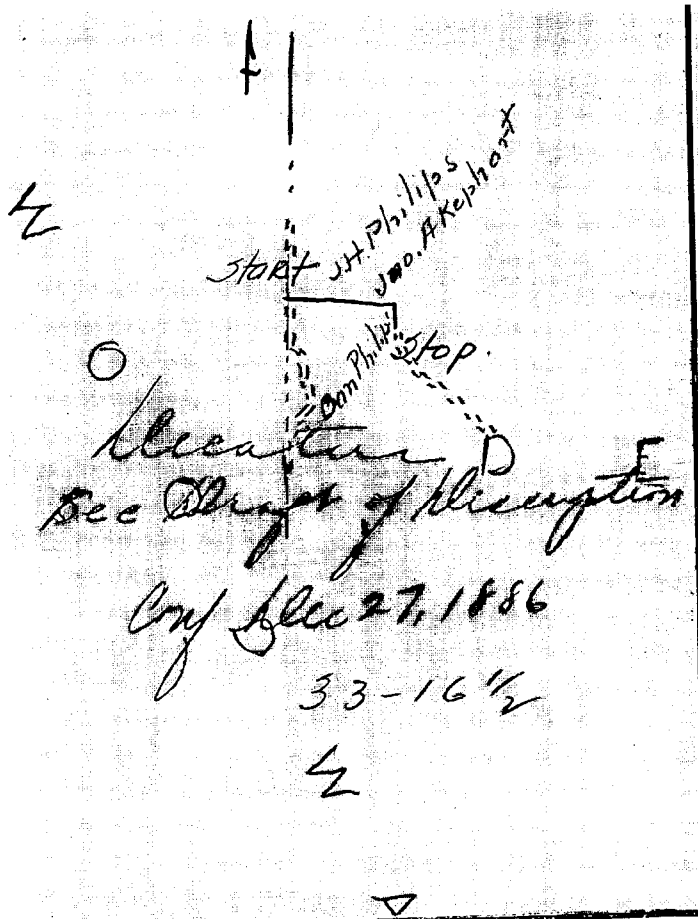 Start J.H. Philips
Jno. A Kephart
Dan Philips
Stop.
Decatur
See Draft of Description
Conf Dec 27, 1886
33-16 1/2